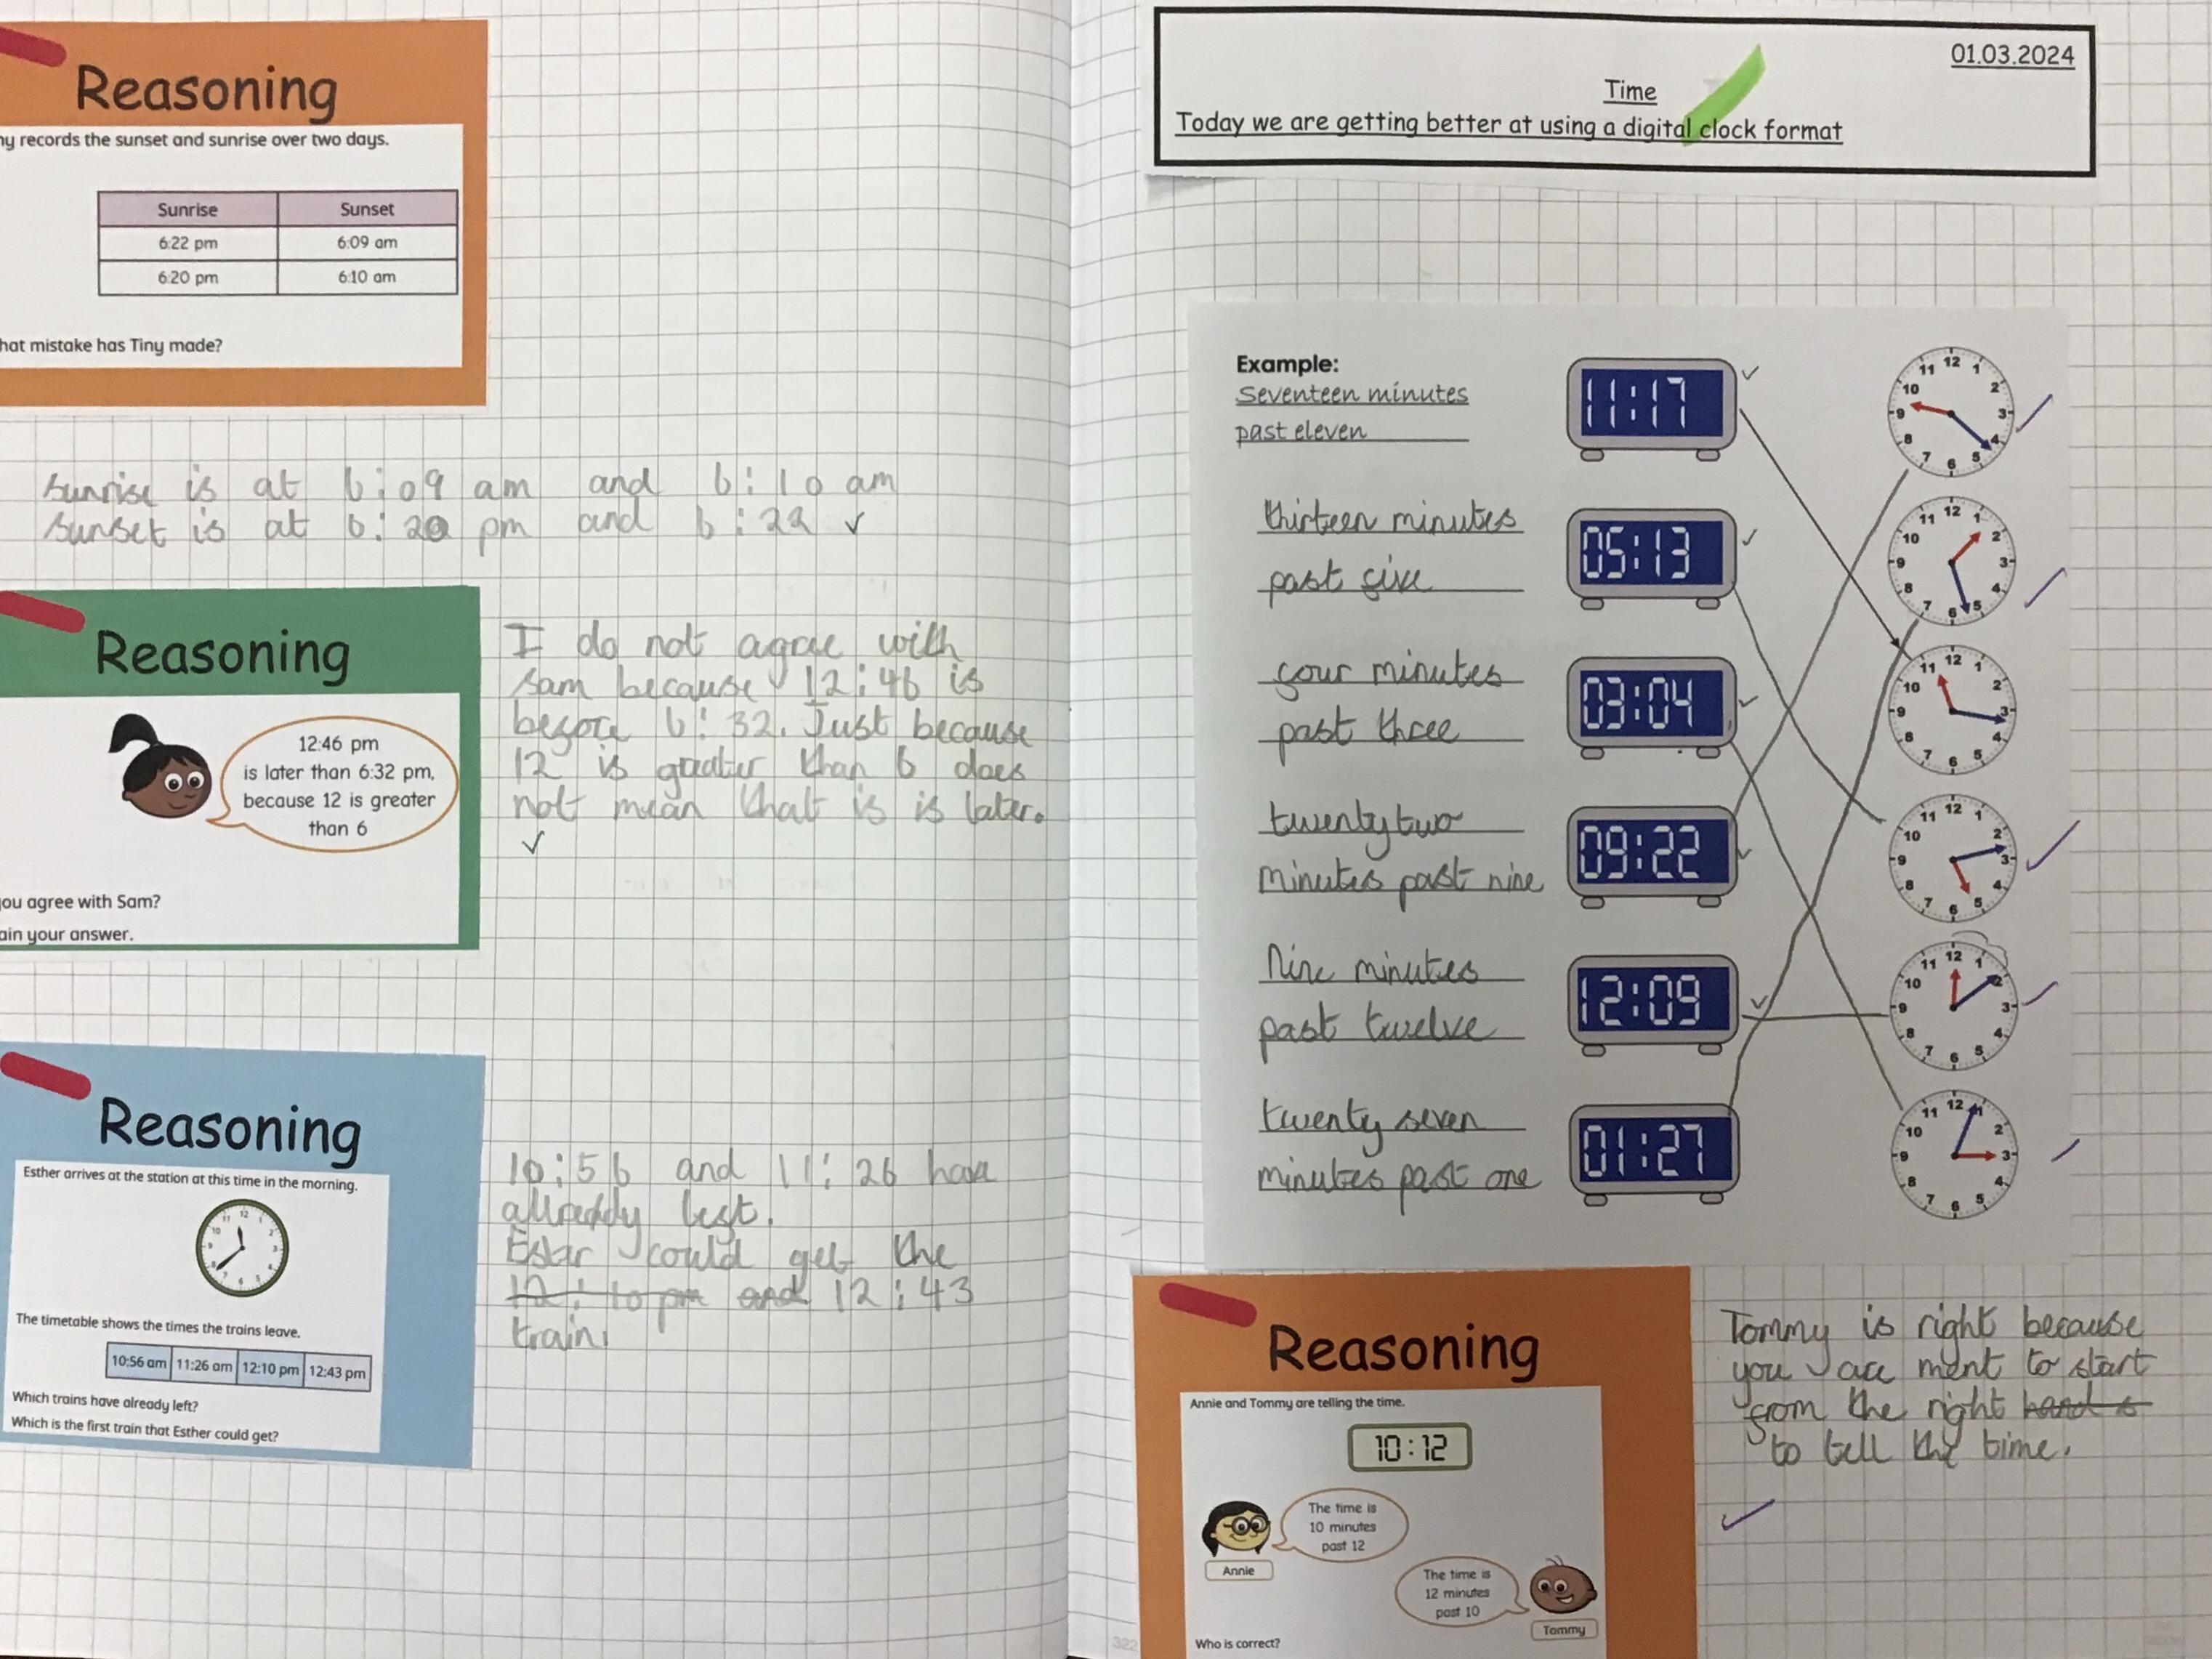 Reasoning
ny records the sunset and sunrise over two days.
Sunrise Sunset
6:22 pm 6:09 am
6:20 pm 6:10 am
hat mistake has Tiny made?
sunrise is at 6:09 am and 6:10 am
sunset is at 6:20 pm and 6:22
Reasoning
12:46 pm
is later than 6:32 pm,
because 12 is greater
than 6
you agree with Sam?
ain your answer.
I do not agree with
sam because 12:46 is
before 6:32. Just because
12 is greater than 6 does
not mean that is is later.
Reasoning
Esther arrives at the station at this time in the morning.
12 1 2 3 4 5 6 7 8 9 10 11
The timetable shows the times the trains leave.
10:56 am 11:26 am 12:10 pm 12:43 pm
Which trains have already left?
Which is the first train that Esther could get?
10:56 and 11:26 have
allready left.
Estar could get the
12:10 pm and 12:43
train.
01.03.2024
Time
Today we are getting better at using a digital clock format
Example:
Seventeen minutes
past eleven
11:17
12 1 2 3 4 5 6 7 8 9 10 11
thirteen minutes
past five
05:13
12 1 2 3 4 5 6 7 8 9 10 11
four minutes
past three
03:04
12 1 2 3 4 5 6 7 8 9 10 11
twenty two
minutes past nine
09:22
12 1 2 3 4 5 6 7 8 9 10 11
Nine minutes
past twelve
12:09
12 1 2 3 4 5 6 7 8 9 10 11
twenty seven
minutes past one
01:27
12 1 2 3 4 5 6 7 8 9 10 11
Reasoning
Annie and Tommy are telling the time.
10:12
The time is
10 minutes
past 12
Annie
The time is
12 minutes
past 10
Tommy
Who is correct?
Tommy is right because
you are ment to start
from the right hand s
to tell the time.
322